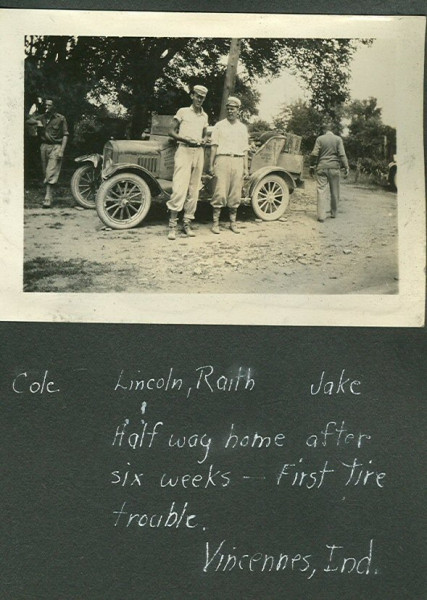 Cole. Lincoln, Raith Jake
Half way home after
six weeks - First Tire
trouble.
Vincennes, Ind.